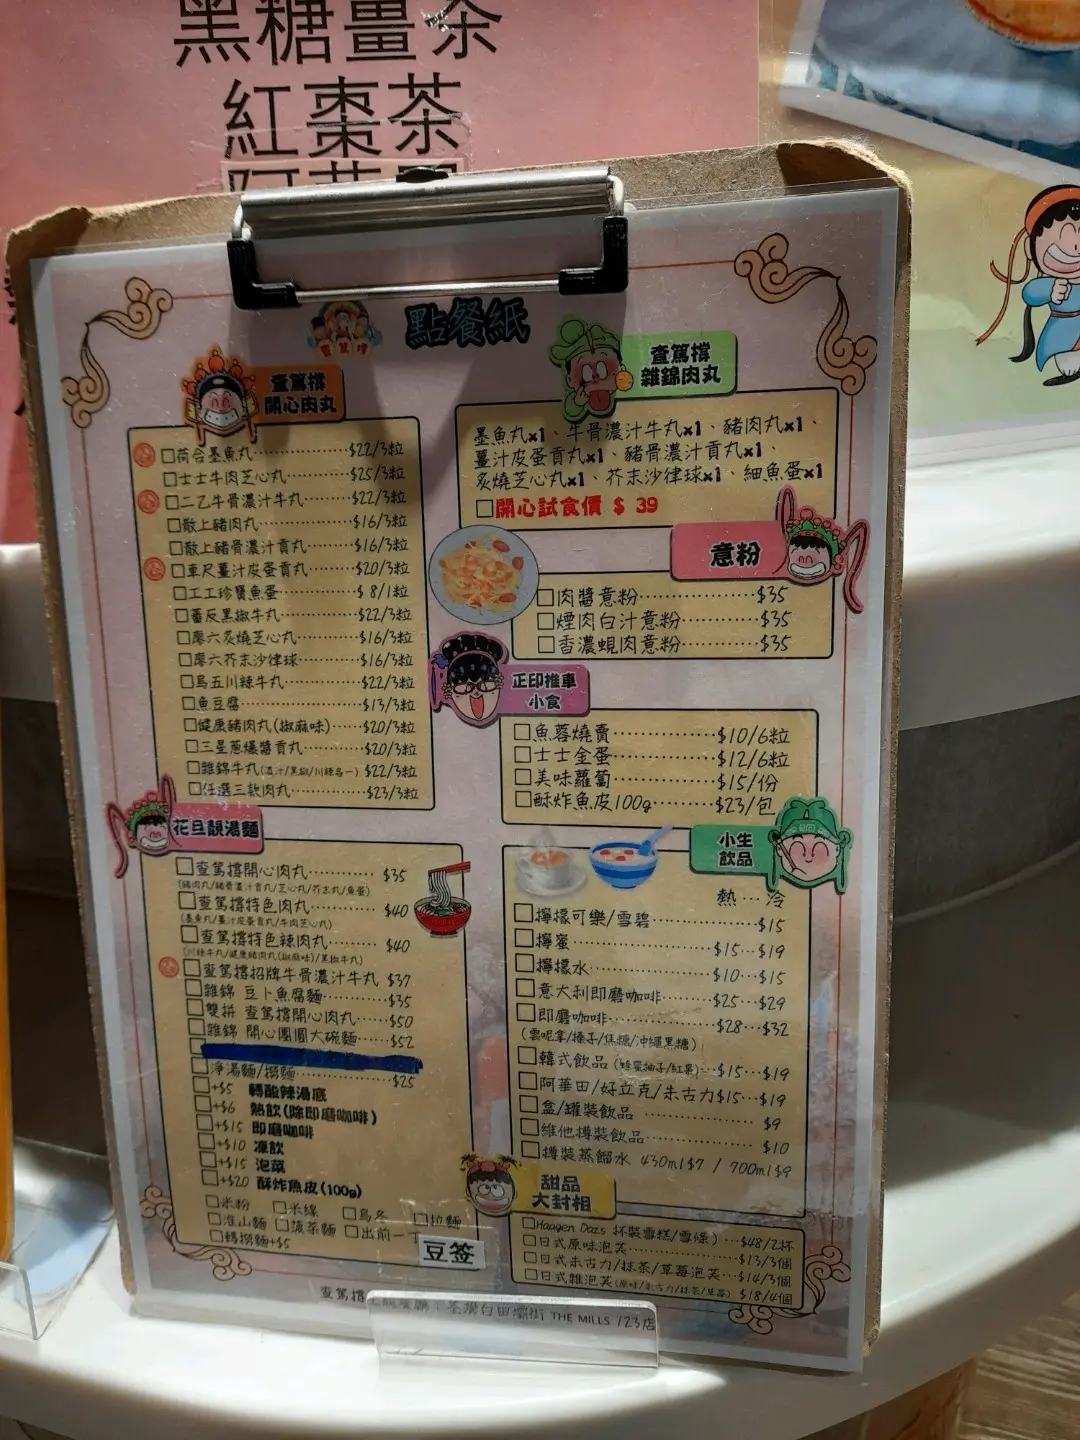 黑糖薑茶
紅棗茶
點餐紙
查篤撐
開心肉丸
荷合墨魚丸 $22/3粒
士士牛肉芝心丸 $25/3粒
二乙牛骨濃汁牛丸 $22/3粒
散上豬肉丸 $16/3粒
散上豬骨濃汁貢丸 $16/3粒
車尺薑汁皮蛋貢丸 $20/3粒
工工珍寶魚蛋 $8/1粒
番反黑椒牛丸 $22/3粒
廖六炙燒芝心丸 $16/3粒
廖六芥末沙律球 $16/3粒
烏五川辣牛丸 $22/3粒
魚豆腐 $13/3粒
健康豬肉丸(椒麻味) $20/3粒
三星葱爆醬貢丸 $20/3粒
雜錦牛丸(濃汁/黑椒/川辣各一) $22/3粒
任選三款肉丸 $23/3粒
花旦靚湯麵
查篤撐開心肉丸 $35
(豬肉丸/豬骨濃汁貢丸/芝心丸/芥末丸/魚蛋)
查篤撐特色肉丸 $40
(墨魚丸/薑汁皮蛋貢丸/牛肉芝心丸)
查篤撐特色辣肉丸 $40
(川辣牛丸/健康豬肉丸(椒麻味)/黑椒牛丸)
查篤撐招牌牛骨濃汁牛丸 $37
雜錦 豆卜魚腐麵 $35
雙拼 查篤撐開心肉丸 $50
雜錦 開心團圓大碗麵 $52
淨湯麵/撈麵 $25
+$5 轉酸辣湯底
+$6 熱飲(除即磨咖啡)
+$15 即磨咖啡
+$10 凍飲
+$15 泡菜
+$20 酥炸魚皮(100g)
米粉 米線 烏冬 拉麵
淮山麵 菠菜麵 出前一丁
轉撈麵+$5
豆签
查篤撐
雜錦肉丸
墨魚丸x1、牛骨濃汁牛丸x1、豬肉丸x1、
薑汁皮蛋貢丸x1、豬骨濃汁貢丸x1、
炙燒芝心丸x1、芥末沙律球x1、細魚蛋x1
開心試食價 $ 39
意粉
肉醬意粉 $35
煙肉白汁意粉 $35
香濃蜆肉意粉 $35
正印推車
小食
魚蓉燒賣 $10/6粒
士士金蛋 $12/6粒
美味蘿蔔 $15/份
酥炸魚皮100g $23/包
小生
飲品
熱…冷
檸檬可樂/雪碧 $15
檸蜜 $15…$19
檸檬水 $10…$15
意大利即磨咖啡 $25…$29
即磨咖啡 $28…$32
(雲呢拿/榛子/焦糖/沖繩黑糖)
韓式飲品(蜂蜜柚子/紅棗) $15…$19
阿華田/好立克/朱古力 $15…$19
盒/罐裝飲品 $9
維他樽裝飲品 $10
樽裝蒸餾水 430ml $7 / 700ml $9
甜品
大封相
Haagen Dazs 杯裝雪糕/雪條) $48/2杯
日式原味泡芙 $13/3個
日式朱古力/抹茶/草莓泡芙 $14/3個
日式雜泡芙(原味/朱古力/抹茶/草莓) $18/4個
荃灣白田壩街 THE MILLS 123店